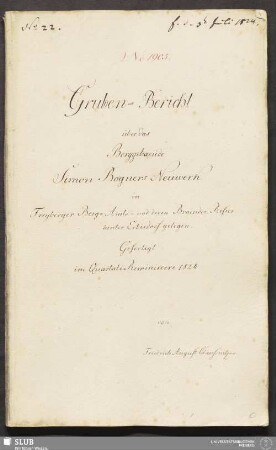 No. 22.
Gruben-Bericht
über das
Berggebäude
Simon Bogners Neuwerk
in
Freyberger Berg-Amts- und deren Brander Refier
hinter Erbisdorf gelegen.
Gefertigt
im Quartale Reminiscere 1824
von
Friedrich August
SLUB
Wir führen Wissen.
UNIVERSITÄTSBIBLIOTHEK
FREIBERG